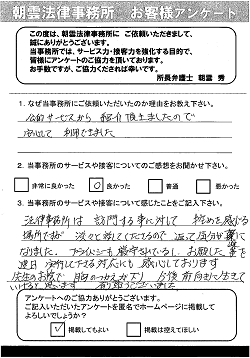 朝雲法律事務所 お客様アンケート
この度は、朝雲法律事務所に ご依頼いただきまして、
誠にありがとうございます。
当事務所では、サービス力・接客力を強化する目的で、
皆様にアンケートのご協力を頂いております。
お手数ですが、ご協力くだされば幸いです。
所長弁護士 朝雲 秀
1. なぜ当事務所にご依頼いただいたのか理由をお教え下さい。
公的サービスから 紹介頂きましたので
安心して 利用できました
2. 当事務所のサービスや接客についてのご感想をお聞かせ下さい。
非常に良かった 良かった 普通 悪かった
3. 当事務所のサービスや接客について感じたことをご記入下さい。
法律事務所は 訪問する事に対して
場所ですが 淡々と話して下さるので 返って気分が楽に
なりました。プライバシーも厳守されているし、お願した事を
対応にも 感心しております
先生のお陰で 胸のつかえが下り 今後前向きに生きて
アンケートへのご協力ありがとうございます。
ご記入いただいたアンケートを匿名でホームページに掲載して
よろしいでしょうか?
掲載してもよい 掲載は控えてほしい